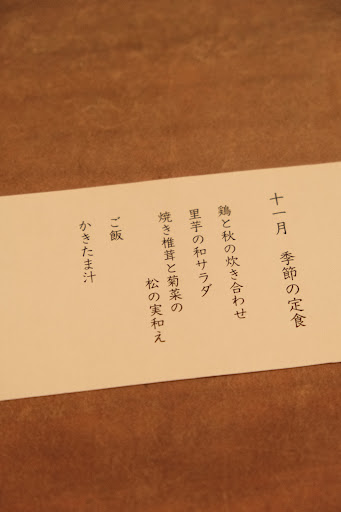 十一月　季節の定食
鶏と秋の炊き合わせ
里芋の和サラダ
焼き椎茸と菊菜の
松の実和え
ご飯
かきたま汁